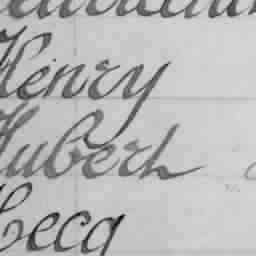 Henry
Hubert
Hecq